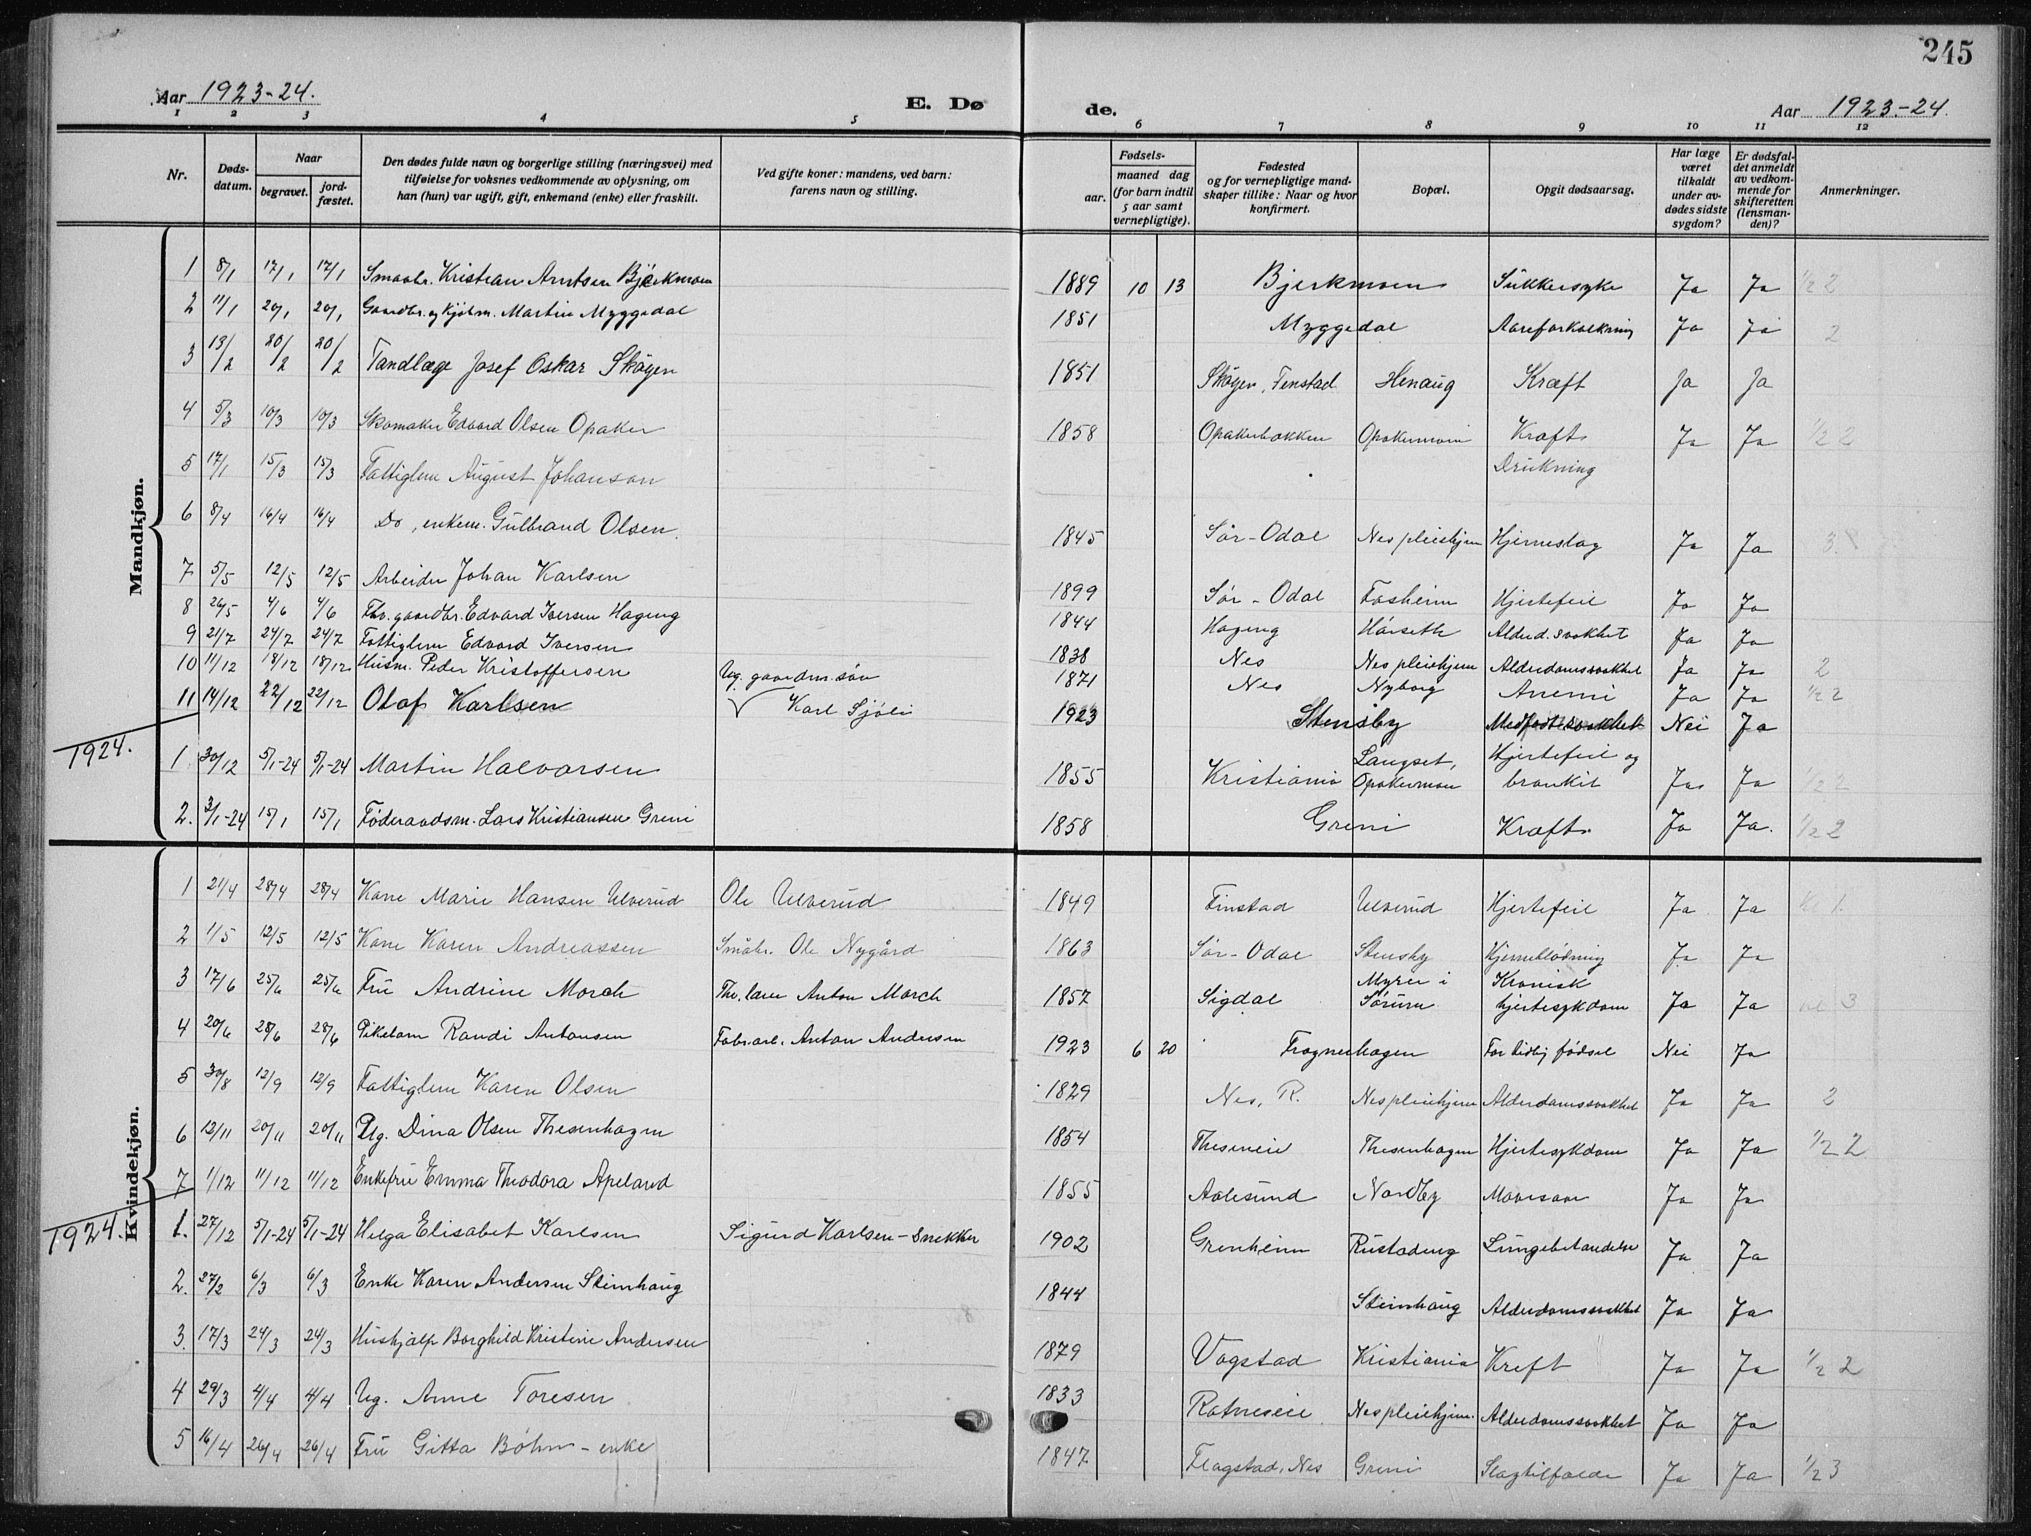 245
Aar 1923-24.
E. Døde.
Aar 1923-24.
1 2 3 4 5 6 7 8 9 10 11 12
Nr.
Døds-
datum.
Naar
begravet.
jord-
fæstet.
Den dødes fulde navn og borgerlige stilling (næringsvei) med
tilføielse for voksnes vedkommende av oplysning, om
han (hun) var ugift, gift, enkemand (enke) eller fraskilt.
Ved gifte koner: mandens, ved barn:
farens navn og stilling.
Fødsels-
aar.
maaned dag
(for barn indtil
5 aar samt
vernepligtige).
Fødested
og for vernepligtige mand-
skaper tillike: Naar og hvor
konfirmert.
Bopæl.
Opgit dødsaarsag.
Har læge
været
tilkaldt
under av-
dødes sidste
sygdom?
Er dødsfal-
det anmeldt
av vedkom-
mende for
skifteretten
(lensman-
den)?
Anmerkninger.
Mandkjøn.
1 8/1 17/1 17/1 Smaabr. Kristian Arntsen Bjerkmoen 1889 10 13 Bjerkmoen Sukkersyke Ja Ja 1/2 2
2 11/1 20/1 20/1 Gaardbr. og kjøbm. Martin Myggedal 1851 Myggedal Aareforkalkning Ja Ja 2
3 13/2 20/2 20/2 Tandlæge Josef Oskar Skøyen 1851 Skøyen, Fenstad Henaug Kræft Ja Ja
4 5/3 10/3 10/3 Skomaker Edvard Olsen Opaker 1858 Opakerbakken Opakermoin Kræft Ja Ja 1/2 2
5 17/1 15/3 15/3 Fattiglem August Johanson Drukning
6 8/4 16/4 16/4 Do, enkem. Gulbrand Olsen. 1845 Sør-Odal Nes pleiehjem Hjerneslag Ja Ja 3
7 5/5 12/5 12/5 Arbeider Johan Karlsen 1899 Sør-Odal Fosheim Hjertefeil Ja Ja
8 26/5 4/6 4/6 Fhv. gaardbr. Edvard Iversen Hageng 1844 Hageng Hårseth Alderd. svakhet Ja Ja
9 21/7 24/7 24/7 Fattiglem Edvard Iversen 1838 Nes Nes pleiehjem Alderdomssvakhet Ja Ja 2
10 11/12 18/12 18/12 Husm. Peder Kristoffersen 1871 Nes Nyborg Anemi Ja Ja 1/2 2
11 14/12 22/12 22/12 Olaf Karlsen Ug. gaardm. søn Karl Sjøli 1923 Stensby Medfødt svakhet Nei Ja
1924.
1 30/12 5/1-24 5/1-24 Martin Halvorsen 1855 Kristiania Langset, Opakermoen Hjertefeil og bronkit Ja Ja 1/2 2
2. 3/1-24 15/1 15/1 Føderaadsm. Lars Kristiansen Greni 1858 Greni Kræft. Ja Ja. 1/2 2
Kvindekjøn.
1 21/4 28/4 28/4 Kone Marie Hansen Ulverud Ole Ulverud 1849 Finstad Ulverud Hjertefeil Ja Ja 1.
2 1/5 12/5 12/5 Kone Karen Andreassen Småbr. Ole Nygård 1863 Sør-Odal Stensby Hjerneblødning Ja Ja
3 17/6 25/6 25/6 Fru Andrine Morch Fhv. lærer Anton Morch 1857 Sigdal Myrer i Sørum Kronisk hjertesykdom Ja Ja 3
4 20/6 28/6 28/6 Pikebarn Randi Antonsen Fabr.arb. Anton Andersen 1923 6 20 Frognerhagen For tidlig fødsel Nei Ja
5 30/8 12/9 12/9 Fattiglem Karen Olsen 1829 Nes, R. Nes pleiehjem Alderdomssvakhet Ja Ja 2
6 12/11 20/11 20/11 Ug. Dina Olsen Thesenhagen 1854 Theseneie Thesenhagen Hjertesykdom Ja Ja 1/2 2
7 1/12 11/12 11/12 Enkefru Emma Theodora Apeland 1855 Aalesund Nordby Mavesaar Ja Ja
1924.
1. 27/12 5/1-24 5/1-24 Helga Elisabet Karlsen Sigurd Karlsen - Snekker 1902 Grenheim Rustadeng Lungebetændelse Ja Ja
2. 27/2 6/3 6/3 Enke Karen Andersen Steinhaug 1844 Steinhaug Alderdomssvakhet Ja Ja
3. 17/3 24/3 24/3 Hushjælp Borghild Kristine Andersen 1879 Vogstad Kristiania Kreft Ja Ja 1/2 2
4 29/3 4/4 4/4 Ug. Anne Toresen 1833 Ratneseie Nes pleiehjem. Alderdomssvakhet Ja Ja
5 16/4 26/4 26/4 Fru Gitta Bøhn - enke 1847 Flagstad, Nes Greni Slagtilfælde Ja Ja 1/2 3